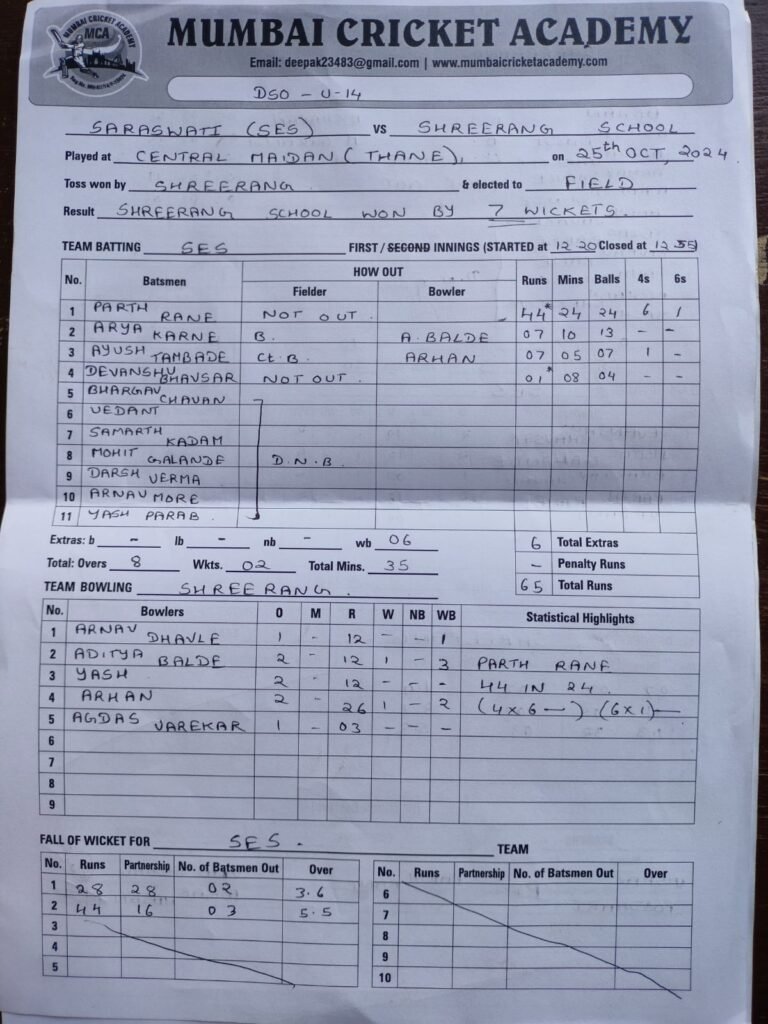 MUMBAI CRICKET ACADEMY
MCA
MUMBAI CRICKET ACADEMY
Email: deepak23483@gmail.com | www.mumbaicricketacademy.com
DSO - U-14
SARASWATI (SES) VS SHREERANG SCHOOL
Played at CENTRAL MAIDAN (THANE), on 25th OCT, 2024
Toss won by SHREERANG & elected to FIELD
Result SHREERANG SCHOOL WON BY 7 WICKETS.
TEAM BATTING SES FIRST / SECOND INNINGS (STARTED at 12 20 Closed at 12 55)
No. Batsmen HOW OUT Runs Mins Balls 4s 6s
Fielder Bowler
1 PARTH RANE NOT OUT. 44* 24 24 6 1
2 ARYA KARNE B. A. BALDE 07 10 13 - -
3 AYUSH TAMBADE Ct. B. ARHAN 07 05 07 1 -
4 DEVANSHU BHAVSAR NOT OUT. 01* 08 04 - -
5 BHARGAV CHAVAN
6 VEDANT
7 SAMARTH KADAM
8 MOHIT GALANDE D.N.B.
9 DARSH VERMA
10 ARNAV MORE
11 YASH PARAB.
Extras: b - lb - nb - wb 06 6 Total Extras
Total: Overs 8 Wkts. 02 Total Mins. 35 - Penalty Runs
65 Total Runs
TEAM BOWLING SHREERANG.
No. Bowlers O M R W NB WB Statistical Highlights
1 ARNAV DHAVLE 1 - 12 - - 1
2 ADITYA BALDE 2 - 12 1 - 3 PARTH RANE
3 YASH 2 - 12 - - - 44 IN 24.
4 ARHAN 2 - 26 1 - 2 (4x6—) (6x1)—
5 AGDAS VAREKAR 1 - 03 - - -
6
7
8
9
FALL OF WICKET FOR SES. TEAM
No. Runs Partnership No. of Batsmen Out Over No. Runs Partnership No. of Batsmen Out Over
1 28 28 02 3.6 6
2 44 16 03 5.5 7
3 8
4 9
5 10